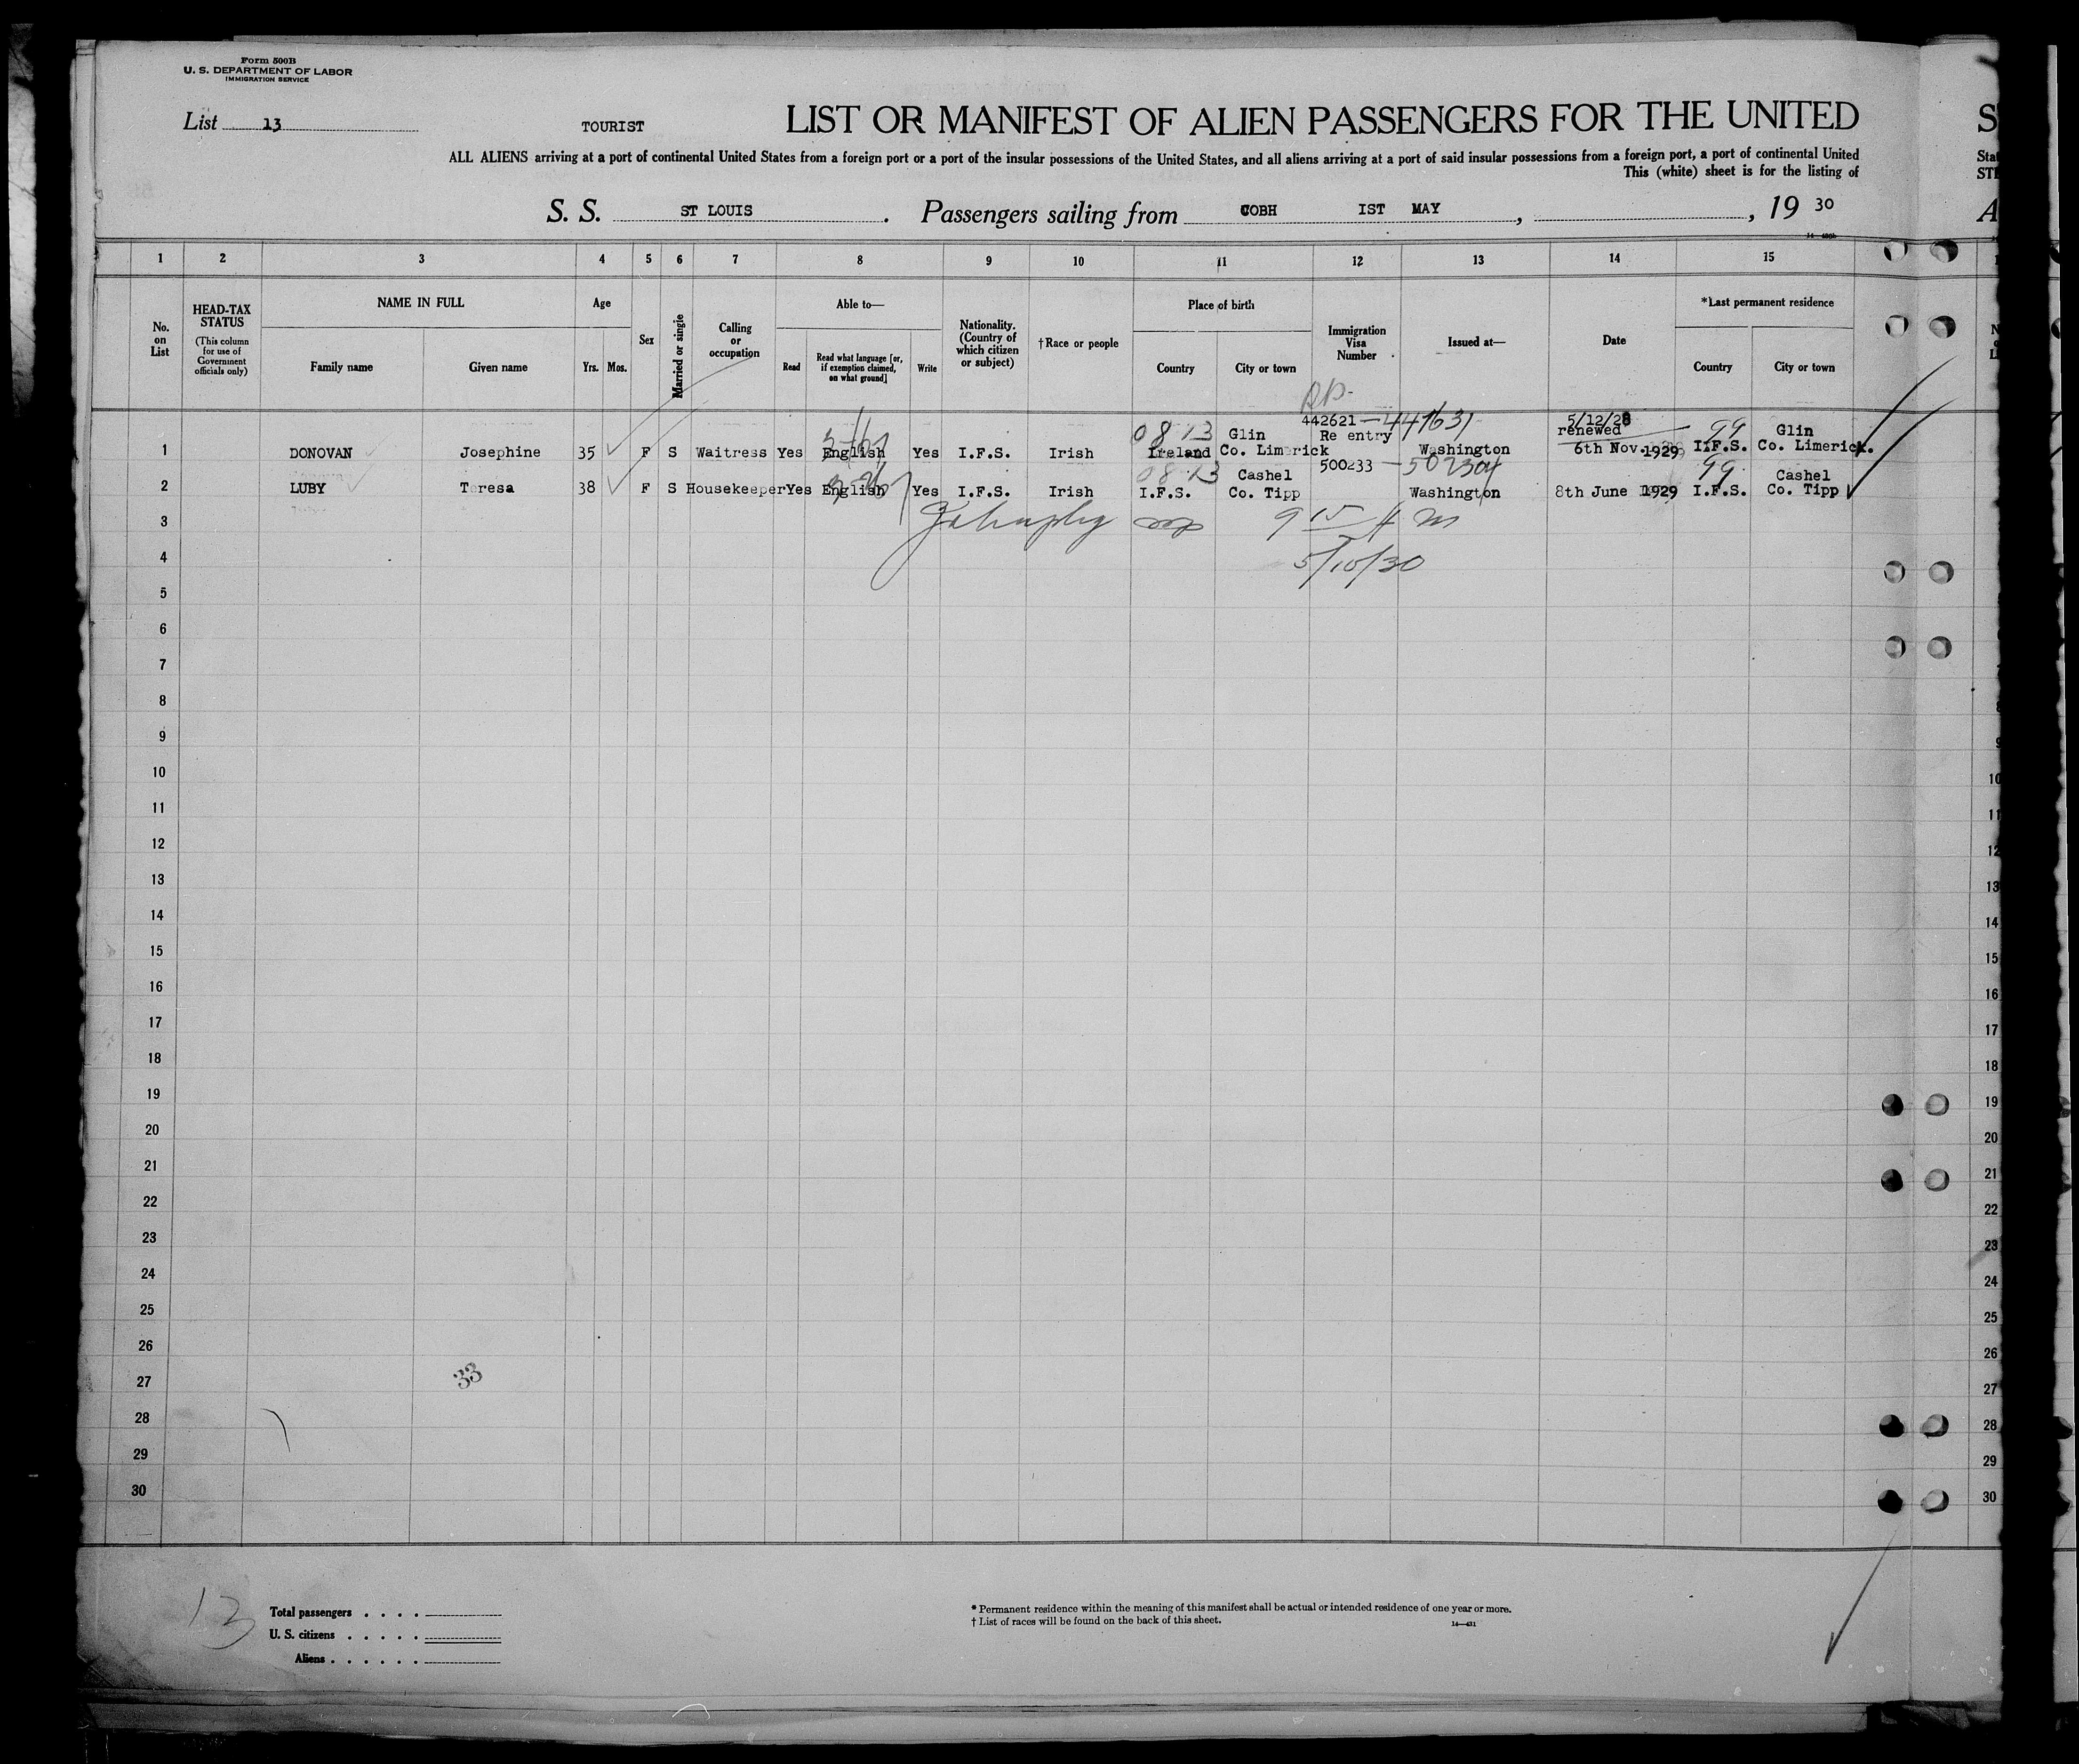 Form 500B
U. S. DEPARTMENT OF LABOR
IMMIGRATION SERVICE
List 13
TOURIST
LIST OR MANIFEST OF ALIEN PASSENGERS FOR THE UNITED
ALL ALIENS arriving at a port of continental United States from a foreign port or a port of the insular possessions of the United States, and all aliens arriving at a port of said insular possessions from a foreign port, a port of continental United
This (white) sheet is for the listing of
S. S. ST LOUIS . Passengers sailing from COBH IST MAY , , 19 30
1 2 3 4 5 6 7 8 9 10 11 12 13 14 15
No. on List
HEAD-TAX STATUS
(This column for use of Government officials only)
NAME IN FULL
Family name
Given name
Age
Yrs. Mos.
Sex
Married or single
Calling or occupation
Able to—
Read
Read what language [or, if exemption claimed, on what ground]
Write
Nationality. (Country of which citizen or subject)
†Race or people
Place of birth
Country
City or town
Immigration Visa Number
Issued at—
Date
*Last permanent residence
Country
City or town
442621 — 441631 5/12/28
08 13 Glin Re entry renewed 99 Glin
1 DONOVAN Josephine 35 F S Waitress Yes English Yes I.F.S. Irish Ireland Co. Limerick Washington 6th Nov. 1929 I.F.S. Co. Limerick.
08 13 Cashel 500233 — 502304 99 Cashel
2 LUBY Teresa 38 F S Housekeeper Yes English Yes I.F.S. Irish I.F.S. Co. Tipp Washington 8th June 1929 I.F.S. Co. Tipp
3 9 15 A M
4 5/10/30
5
6
7
8
9
10
11
12
13
14
15
16
17
18
19
20
21
22
23
24
25
26
27
33
28
29
30
13
Total passengers . . . .
U. S. citizens . . . . .
Aliens . . . . . .
* Permanent residence within the meaning of this manifest shall be actual or intended residence of one year or more.
† List of races will be found on the back of this sheet.